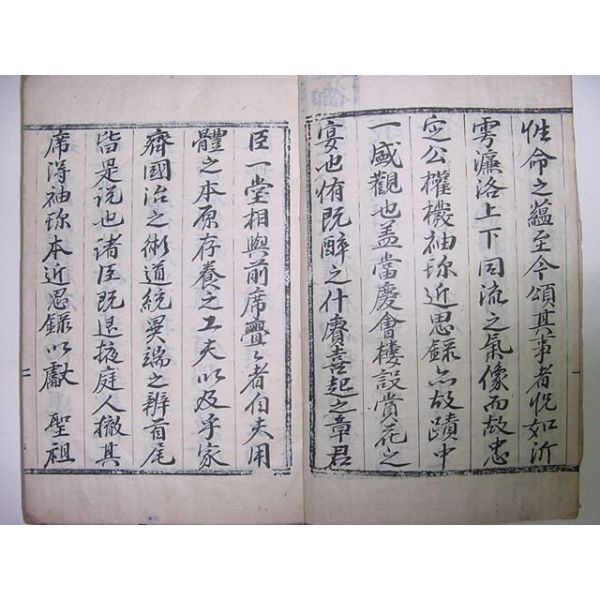 性命之蘊至今頌其事者怳如沂
雩濂洛上下同流之氣像而故忠
定公權橃袖珎近思錄亦故蹟中
一盛觀也盖當慶會樓設賞花之
宴也侑旣醉之什賡喜起之章君
臣一堂相與前席亹〻者伯夫用
體之本原存養之工夫以及乎家
齊國治之術道統異端之辨首尾
皆是說也诸臣旣退掖庭人撤其
席淂袖珎本近思錄以獻 聖祖